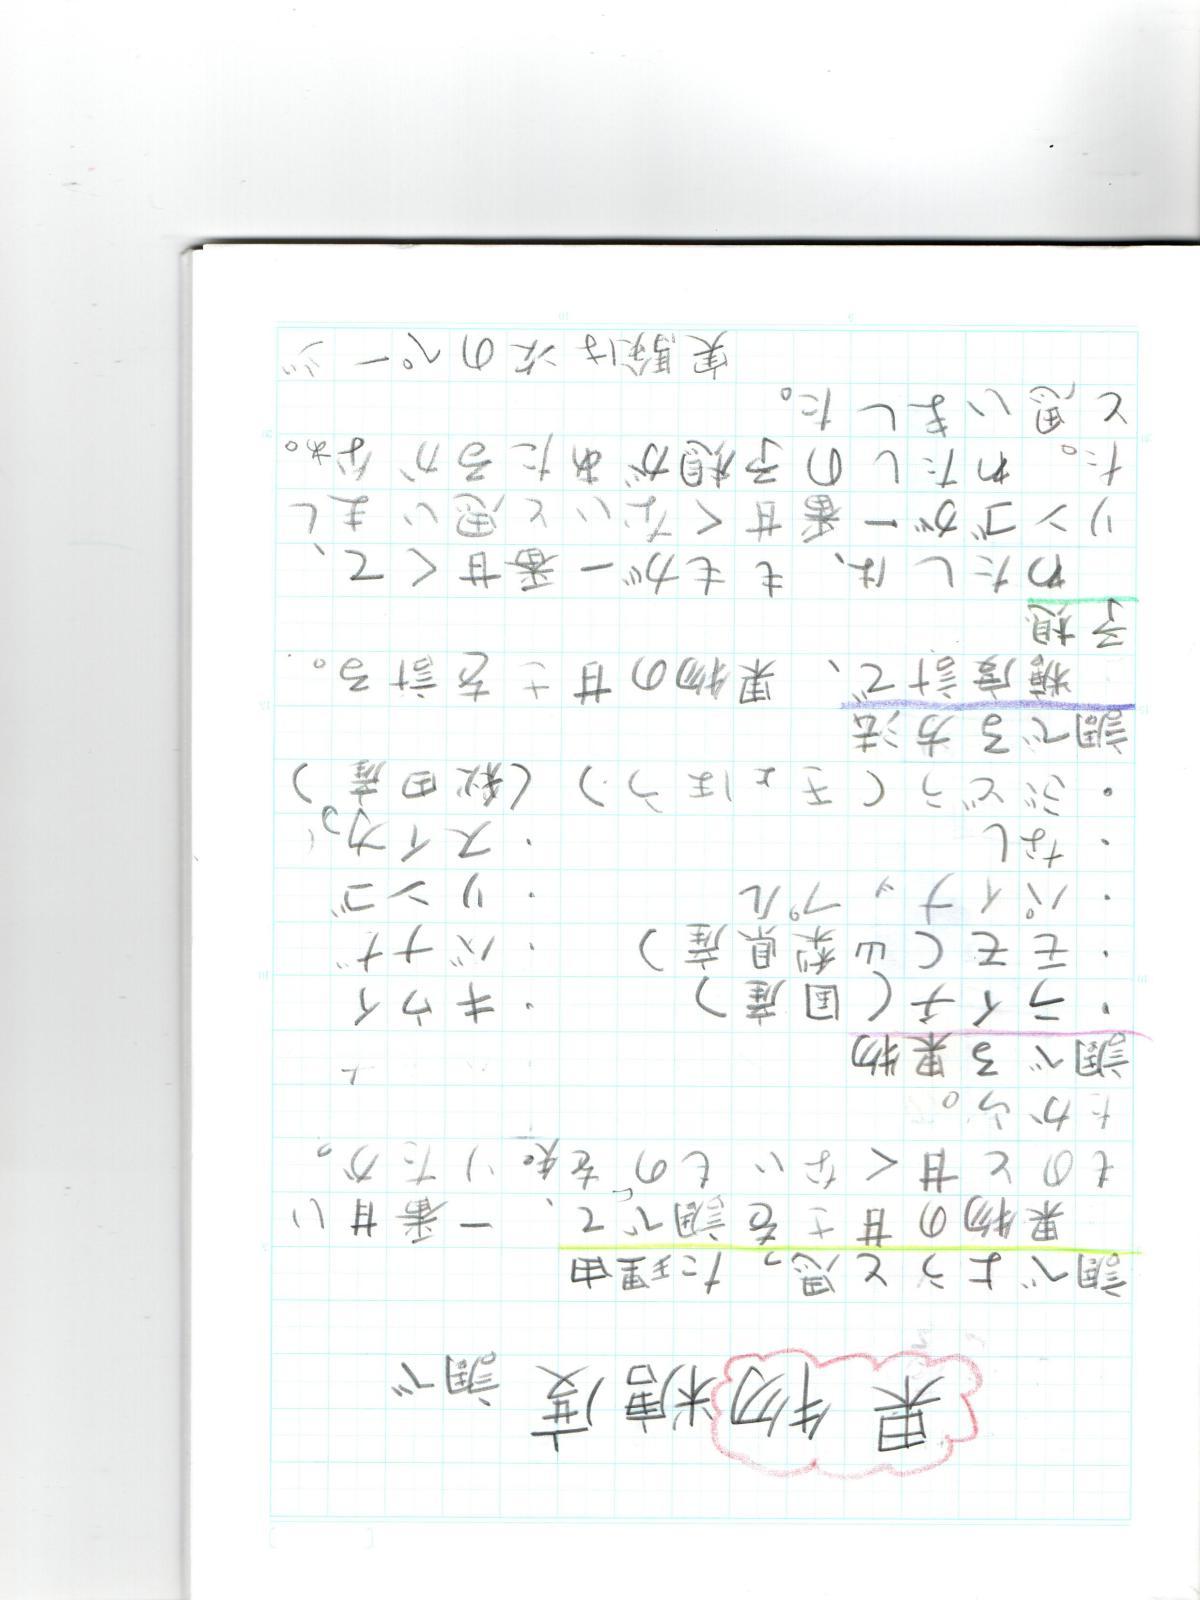 果物糖度調べ
調べようと思った理由
果物の甘さを調べて、一番甘い
ものと甘くないものを知りたか。
たから。
調べる果物
・ライチ(国産) ・キウイ
・モモ(山梨県産) ・バナナ
・パイナップル ・リンゴ
・なし ・スイカ
・ぶどう(きょほう)(秋田産)
調べる方法
糖度計で、果物の甘さを計る。
予想
わたしは、ももが一番甘くて、
リンゴが一番甘くないと思いまし
た。わたしの予想があたるかなぁ。
と思いました。
実験は次のページ